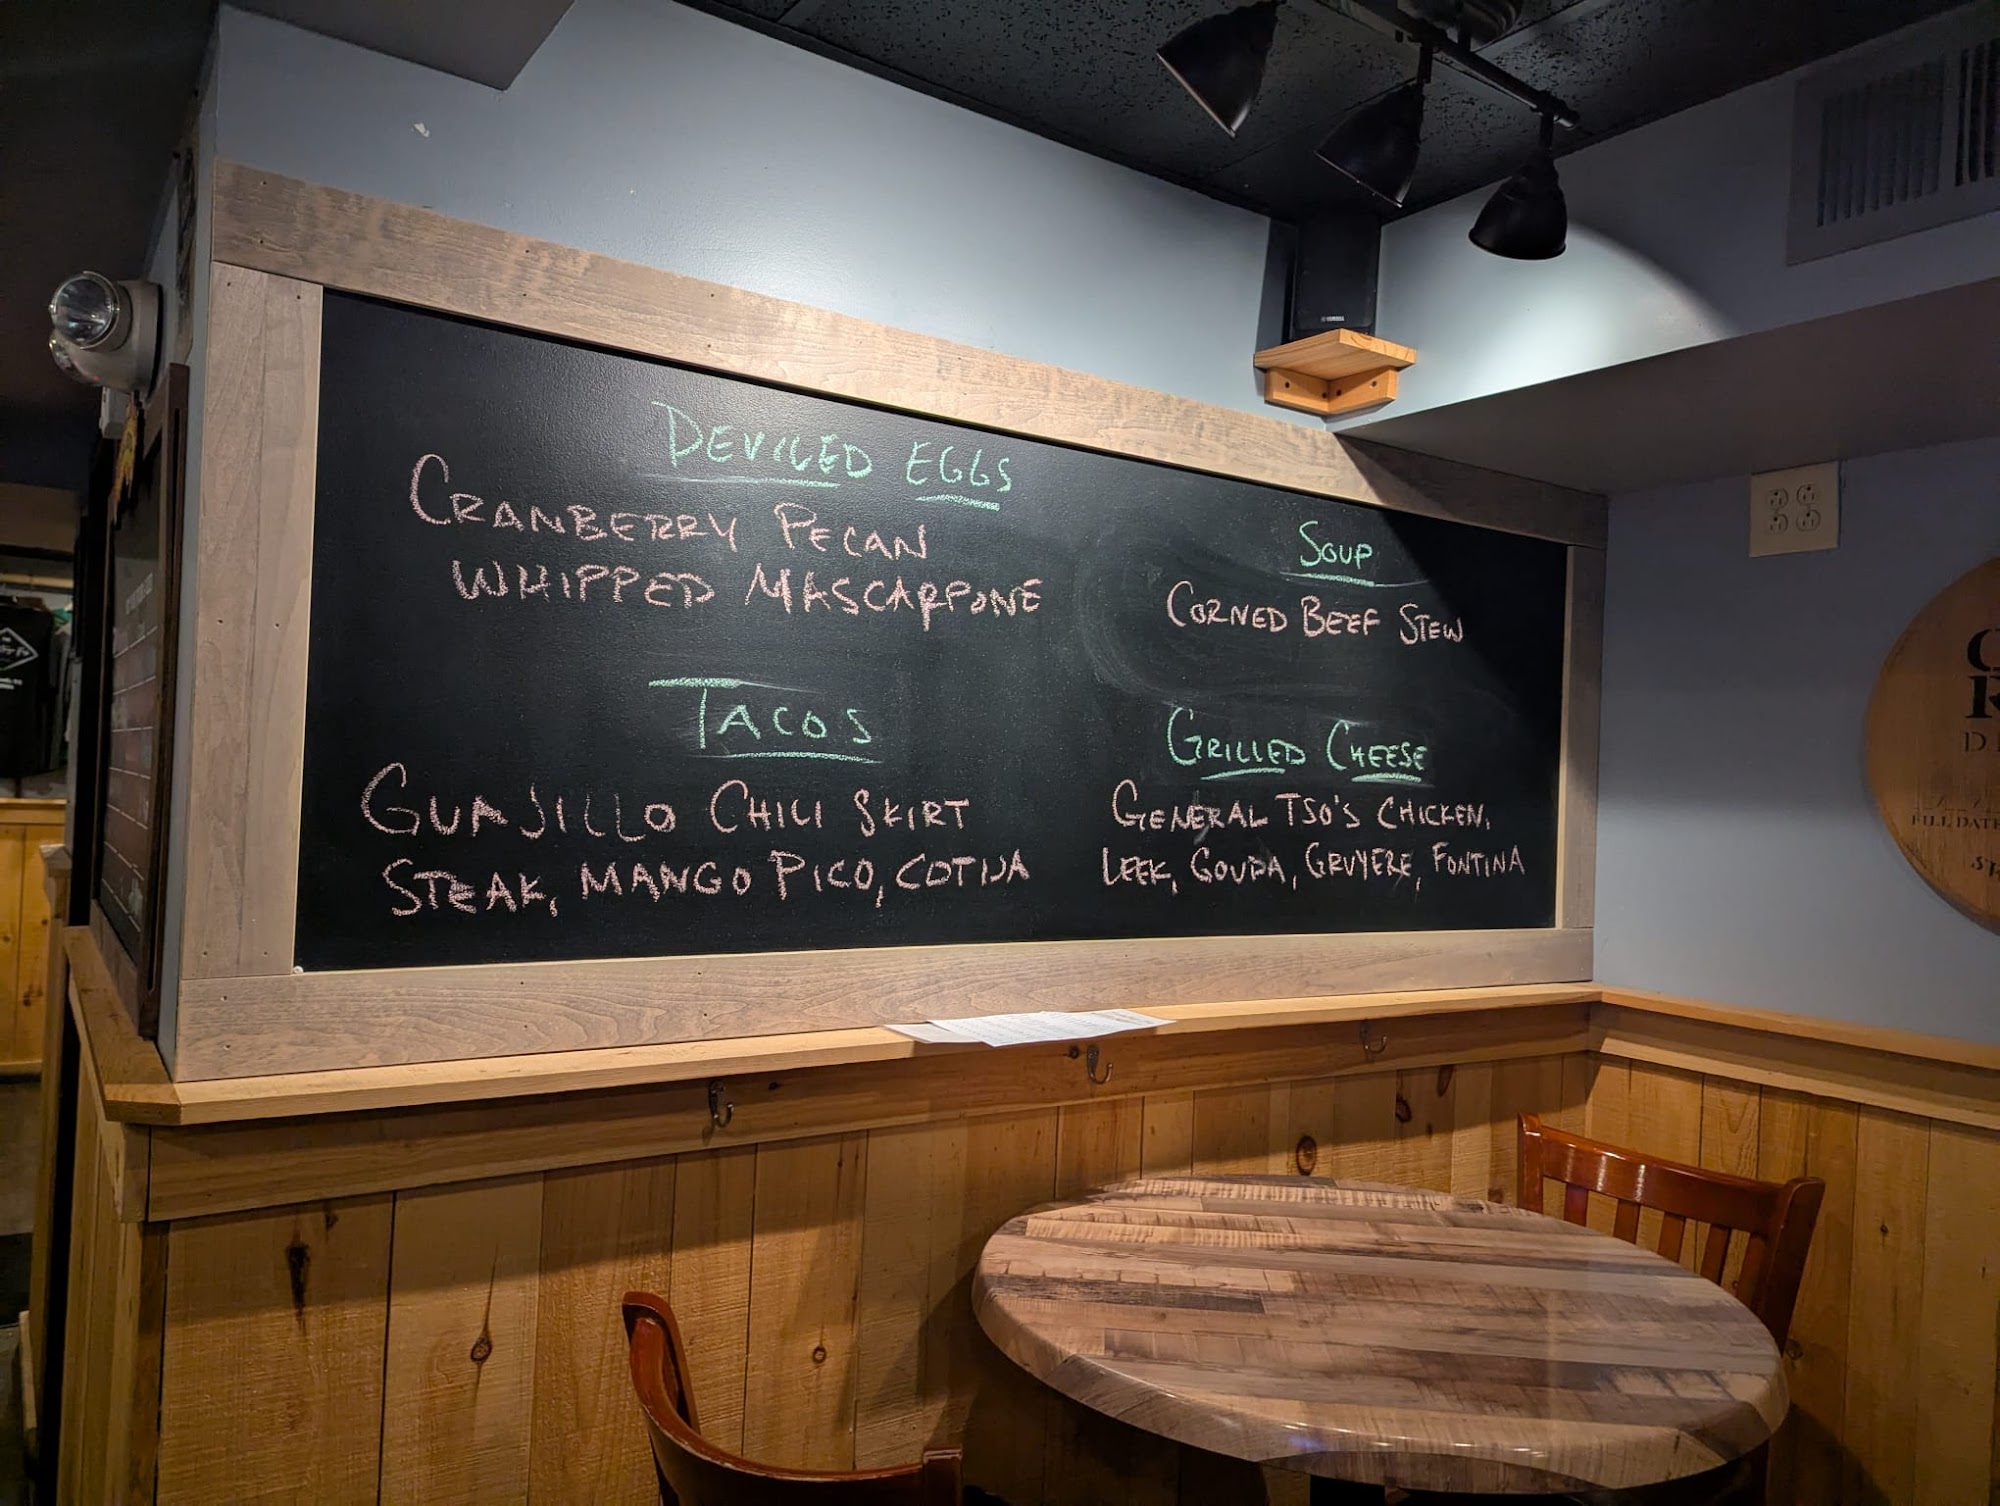 DEVILED EGGS
CRANBERRY PECAN
WHIPPED MASCARPONE
TACOS
GUAJILLO CHILI SKIRT
STEAK, MANGO PICO, COTIJA
SOUP
CORNED BEEF STEW
GRILLED CHEESE
GENERAL TSO'S CHICKEN,
LEEK, GOUDA, GRUYERE, FONTINA
YAMAHA
FILL DATE